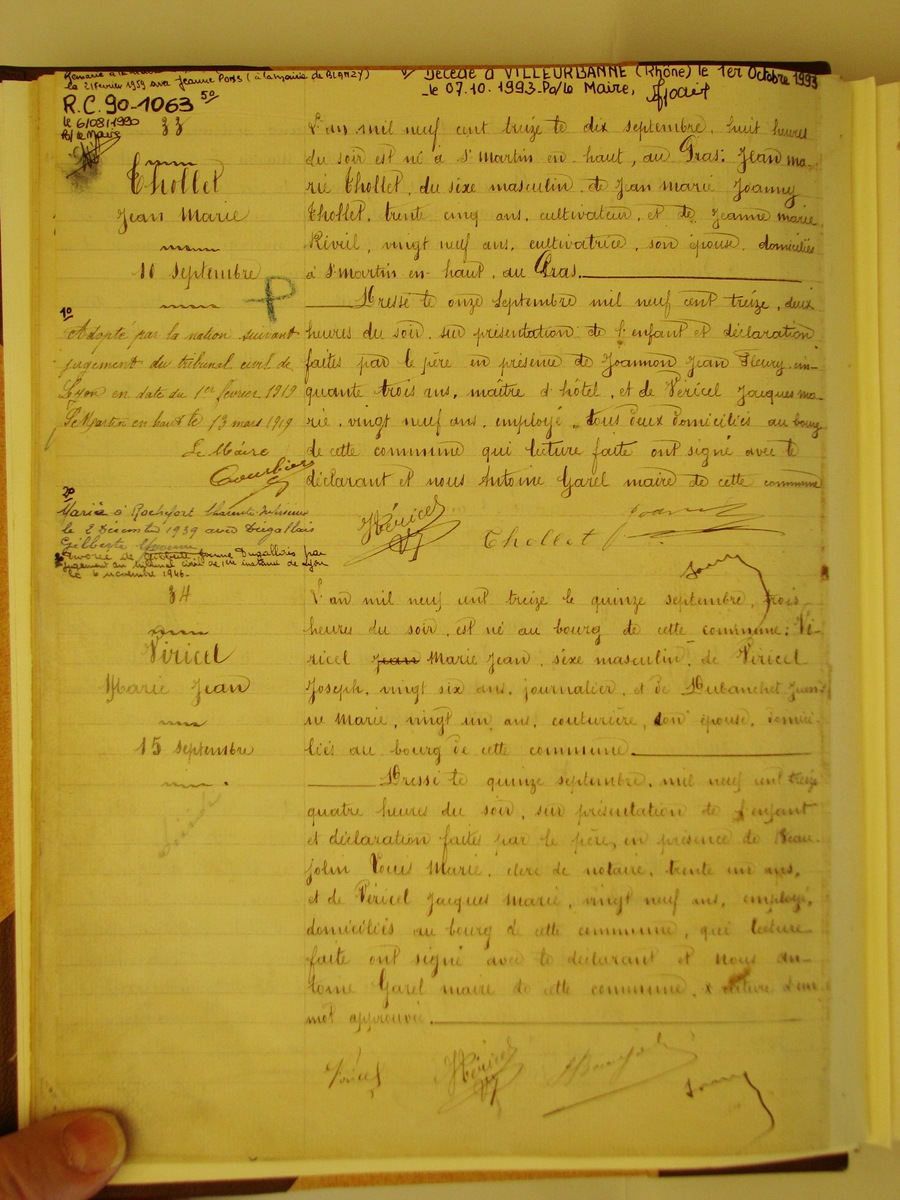 le 21 février 1959 avec Jeanne PONS (à la mairie de BLANZY)
Décédé à VILLEURBANNE (Rhône) le 1er Octobre 1993
le 07.10.1993. Po/le Maire,
R.C. 90-1063 5º
le 6/08/1990
Po/le Maire
33
Thollet
Jean Marie
10 Septembre
P
L'an mil neuf cent treize le dix septembre, huit heures
du soir est né à St Martin en haut, au Gras: Jean ma-
rie Thollet, du sexe masculin, de Jean Marie Joanny
Thollet, trente cinq ans, cultivateur, et de Jeanne marie
vingt neuf ans, cultivatrice, son épouse, domiciliés
à St Martin en haut, au Gras.
Dressé le onze Septembre mil neuf cent treize, deux
heures du soir, sur présentation de l'enfant et déclaration
faites par le père en présence de Joannon Jean Fleury, cin-
quante trois ans, maître d'hôtel, et de Véricel Jacques ma-
rie, vingt neuf ans, employé, tous deux domiciliés au bourg
de cette commune qui lecture faite ont signé avec le
déclarant et nous Antoine Garel maire de cette commune
1º
Adopté par la nation suivant
jugement du tribunal civil de
Lyon en date du 1er février 1919
St Martin en haut le 13 mars 1919
Le Maire
2º
Marié à Rochefort Charente-Inférieure
le 2 Décembre 1939 avec Dugallais
Gilberte Yvonne
Divorcé de Gilberte Yvonne Dugallais par
jugement du tribunal civil de 1ère instance de Lyon
le 6 novembre 1946.
Véricel
Thollet
34
Véricel
Marie Jean
15 Septembre
L'an mil neuf cent treize le quinze septembre, trois
heures du soir, est né au bourg de cette commune: Vé-
ricel Jean Marie Jean, sexe masculin, de Véricel
Joseph, vingt six ans, journalier, et de Dubanchet Jean-
ne Marie, vingt un ans, couturière, son épouse, domici-
liés au bourg de cette commune.
Dressé le quinze septembre, mil neuf cent treize
quatre heures du soir, sur présentation de l'enfant
et déclaration faites par le père, en présence de Beau-
jolin Louis Marie, clerc de notaire, trente un ans,
et de Véricel Jacques Marie, vingt neuf ans, employé,
domiciliés au bourg de cette commune, qui lecture
faite ont signé avec le déclarant et nous An-
toine Garel maire de cette commune. x rature d'un
mot approuvée.
Véricel
Véricel